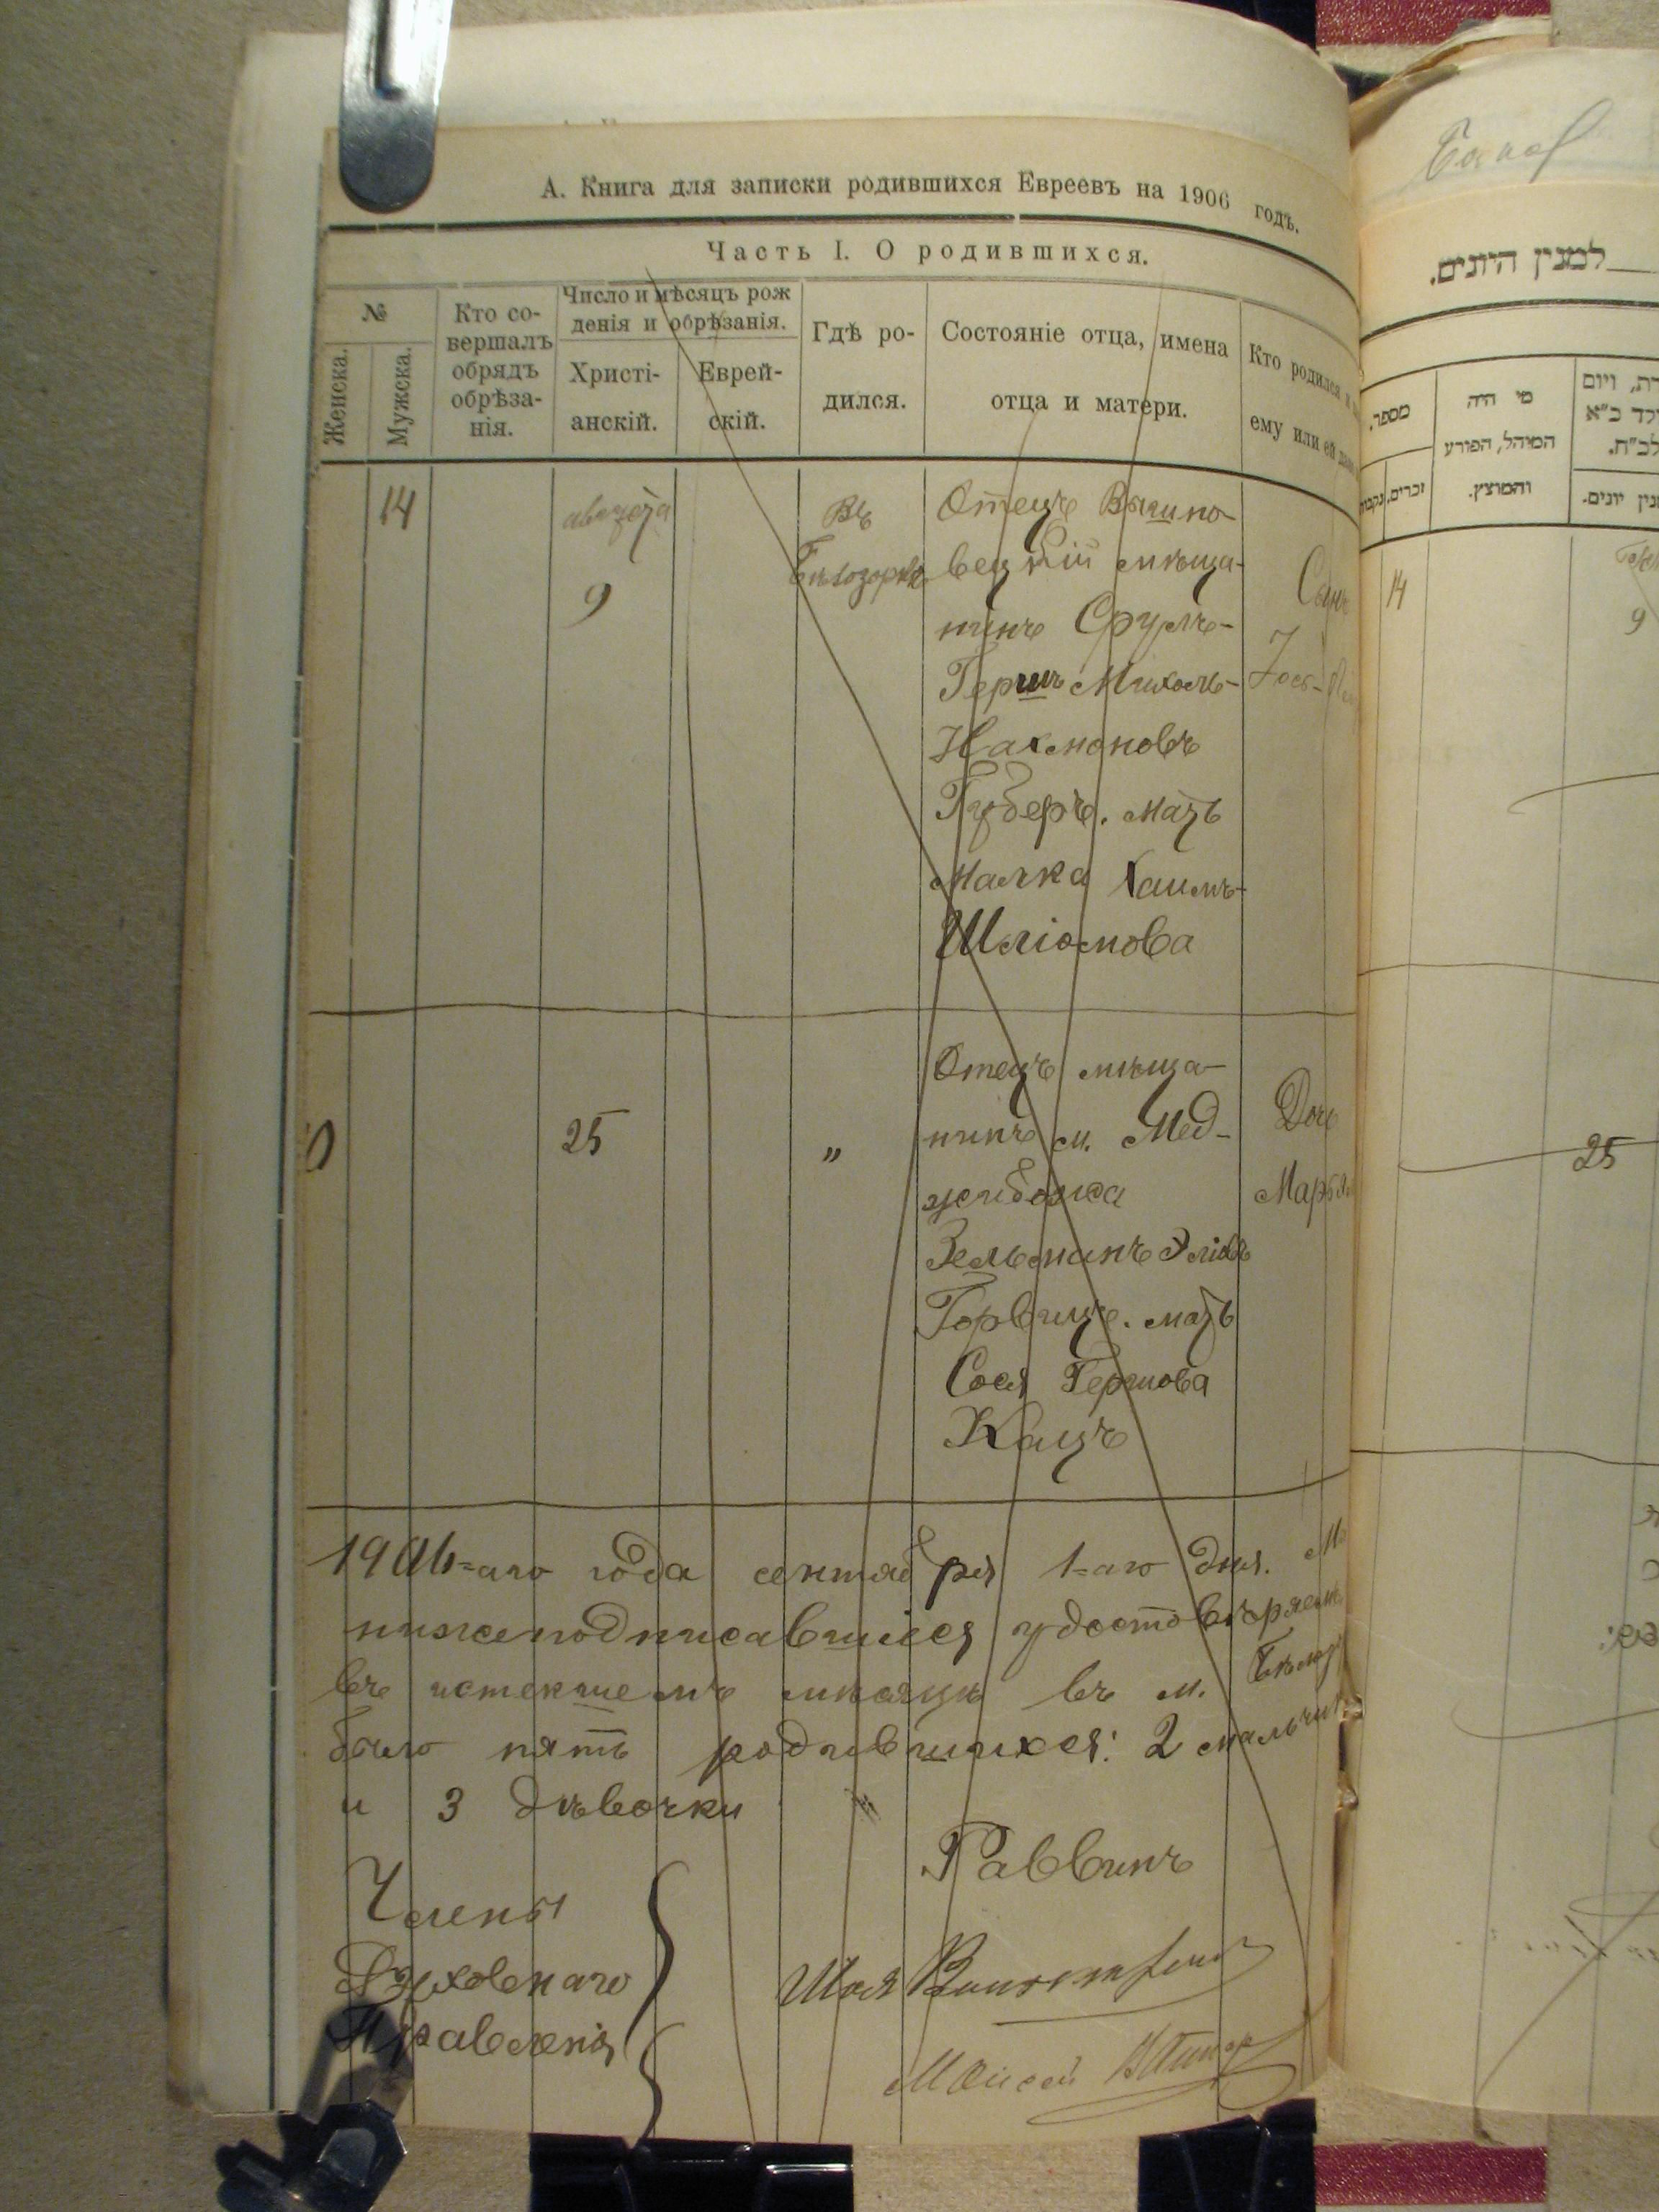 А. Книга для записки родившихся Евреевъ на 1906 годъ.
Часть I. О родившихся.
№
Женска.
Мужска.
Кто со-
вершалъ
обрядъ
обрѣза-
нія.
Число и мѣсяцъ рож
денія и обрѣзанія.
Христі-
анскій.
Еврей-
скій.
Гдѣ ро-
дился.
Состояніе отца, имена
отца и матери.
Кто родился и
ему или ей
14
августа
9
Въ
Бѣлозоркѣ
Отецъ Вышно-
вецкій мѣща-
нинъ Срулъ-
Гершъ Михель-
Нахмановъ
Губеръ. мать
Малка Хаимъ-
Шліомова
Сынъ
25
"
Отецъ мѣща-
нинъ м. Мед-
жибожа
Зельманъ Эліовъ
Горвицъ. мать
Сося Гершова
Кацъ
Дочь
1906-аго года сентября 1-аго дня.
нижеподписавшіеся удостовѣряемъ
въ истекшемъ мѣсяцѣ въ м.
было пять родившихся: 2
и 3 дѣвочки
Члены
Духовнаго
Правленія
Раввинъ
Шая
Моисей
למנין היונים.
מספר.
זכרים.
מי היה
המיהל, הפורע
והמוצץ.
14
9
25